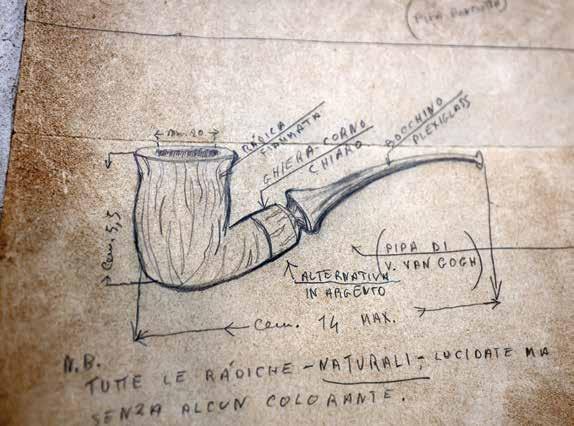 (PIPA
mm. 20
RÁDICA
FIAMMATA
GHIERA-CORNO
CHIARO
BOCCHINO
PLEXIGLASS
Cem. 5,5
(PIPA DI
V. VAN GOGH)
ALTERNATIVA
IN ARGENTO
Cem. 14 MAX.
N.B.
TUTTE LE RÁDICHE - NATURALI; LUCIDATE MA
SENZA ALCUN COLORANTE.